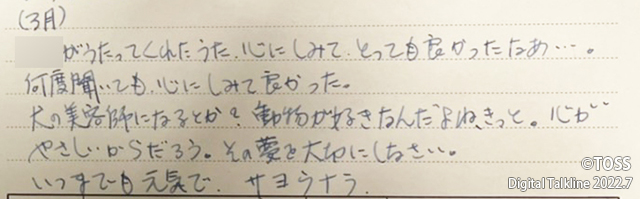 (3月)
がうたってくれたうた、心にしみて、とっても良かったなあ…。
何度聞いても、心にしみて良かった。
犬の美容師になるとか?動物が好きなんだよね、きっと。心が
やさしいからだろう。その夢を大切にしなさい。
いつまでも元気で、サヨウナラ。
©TOSS
Digital Talkline 2022.7